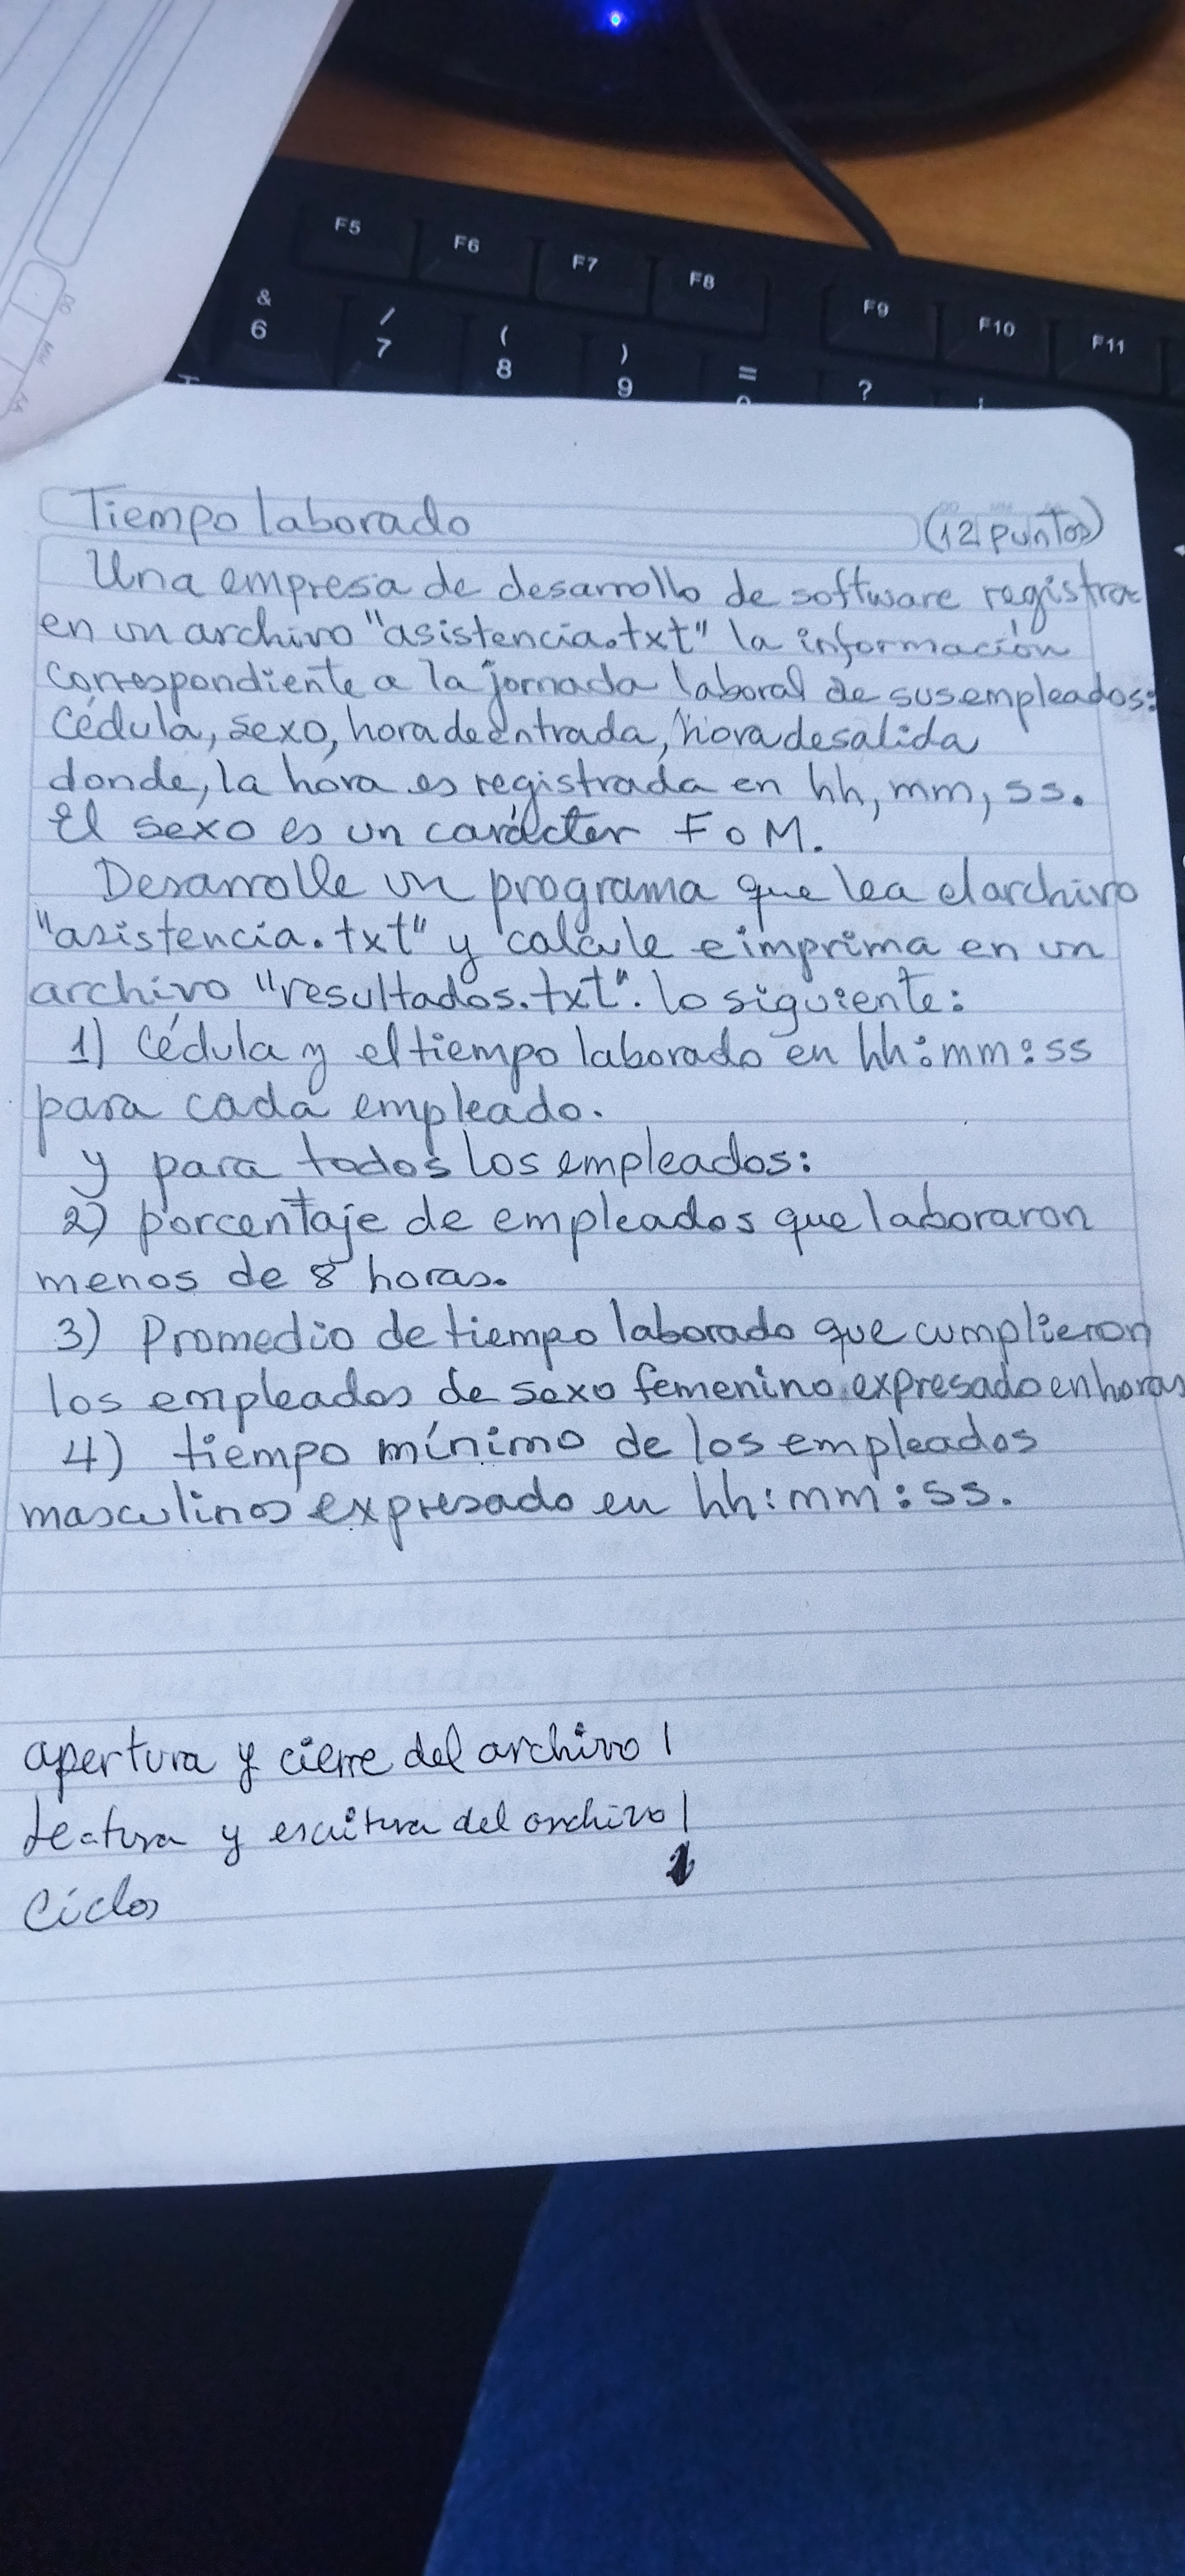 F5
F6
F7
F8
F9
F10
F11
&
6
/
7
(
8
)
9
=
?
Tiempo laborado (12 puntos)
Una empresa de desarrollo de software registra
en un archivo "asistencia.txt" la información
correspondiente a la jornada laboral de sus empleados:
Cédula, sexo, hora de entrada, hora de salida
donde, la hora es registrada en hh, mm, ss.
El sexo es un carácter F o M.
Desarrolle un programa que lea el archivo
"asistencia.txt" y calcule e imprima en un
archivo "resultados.txt". lo siguiente:
1) Cédula y el tiempo laborado en hh:mm:ss
para cada empleado.
y para todos los empleados:
2) porcentaje de empleados que laboraron
menos de 8 horas.
3) Promedio de tiempo laborado que cumplieron
los empleados de sexo femenino expresado en horas
4) tiempo mínimo de los empleados
masculinos expresado en hh:mm:ss.
apertura y cierre del archivo 1
Lectura y escritura del archivo 1
Ciclos